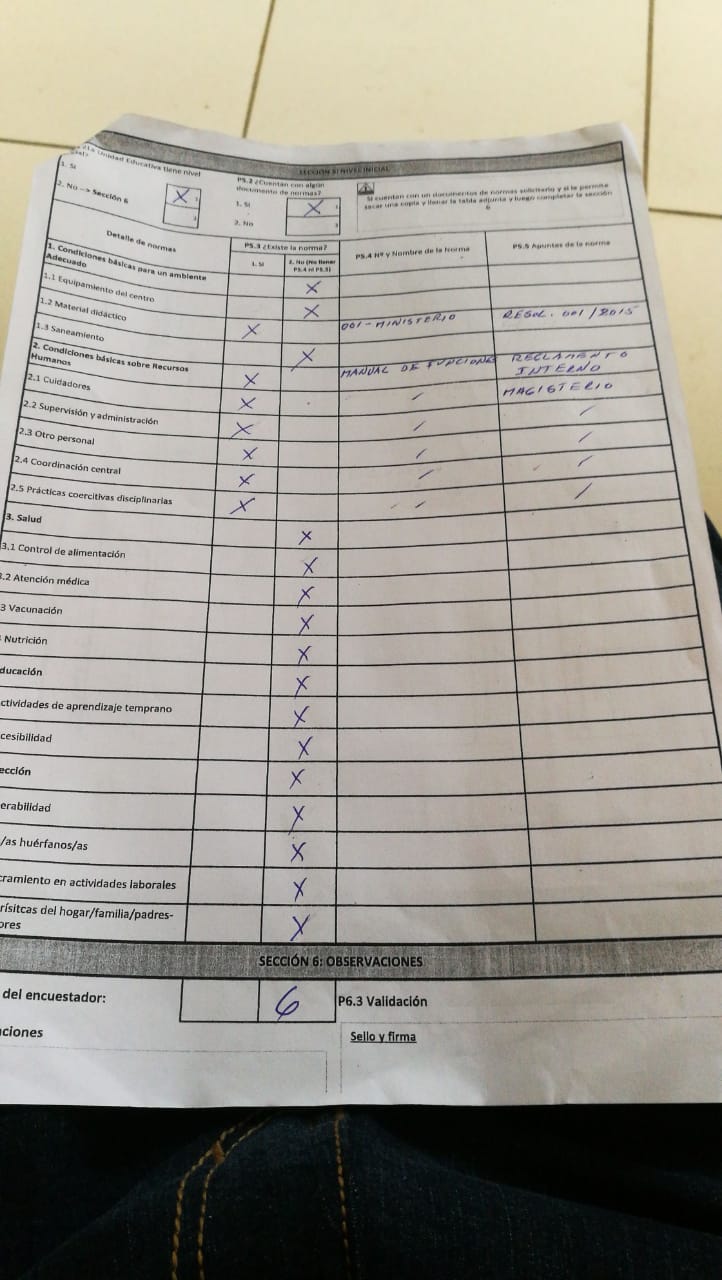 SECCIÓN 5: NIVEL INICIAL
¿La Unidad Educativa tiene nivel
1. Si X 1
2. No --> Sección 6
P5.2 ¿Cuentan con algún
documento de normas?
1. Si X 1
2. No 2
Si cuentan con un documentos de normas solicitarlo y si le permite
sacar una copia y llenar la tabla adjunta y luego completar la sección
6
Detalle de normas
P5.3 ¿Existe la norma?
1. Si
2. No (No llenar
P5.4 ni P5.5)
P5.4 Nº y Nombre de la Norma
P5.5 Apuntes de la norma
1. Condiciones básicas para un ambiente
Adecuado X
1.1 Equipamiento del centro X
1.2 Material didáctico X 001-MINISTERIO RESOL. 001/2015
1.3 Saneamiento X
2. Condiciones básicas sobre Recursos
Humanos X MANUAL DE FUNCIONES REGLAMENTO
INTERNO
2.1 Cuidadores X MAGISTERIO
2.2 Supervisión y administración X
2.3 Otro personal X
2.4 Coordinación central X
2.5 Prácticas coercitivas disciplinarias X
3. Salud X
3.1 Control de alimentación X
3.2 Atención médica X
3 Vacunación X
Nutrición X
ducación X
ctividades de aprendizaje temprano X
cesibilidad X
ección X
erabilidad X
/as huérfanos/as X
cramiento en actividades laborales X
rísitcas del hogar/familia/padres-
ores X
SECCIÓN 6: OBSERVACIONES
del encuestador: 6 P6.3 Validación
ciones
Sello y firma